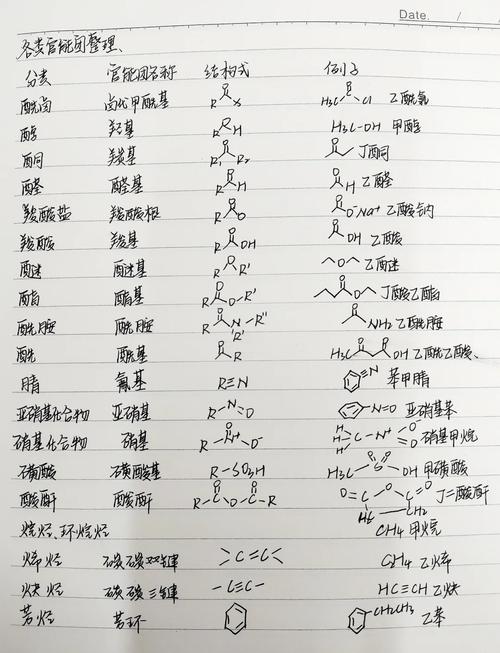 Date. /
各类官能团整理、
分类 官能团名称 结构式 例子
酰卤 卤代甲酰基 R O X H3C O Cl 乙酰氯
醇 羟基 R O H H3C-OH 甲醇
酮 羰基 R1 O R2 O 丁酮
醛 醛基 R O H O H 乙醛
羧酸盐 羧酸根 R O O O O⁻Na⁺ 乙酸钠
羧酸 羧基 R O OH O OH 乙酸
醚 醚基 R O R' O 乙醚
酯 酯基 R O O R' O O 丁酸乙酯
酰胺 酰胺 R O N R' R'' O NH2 乙酰胺
酰 酰基 O R H3C O O OH 乙酰乙酸、
腈 氰基 R≡N ≡N 苯甲腈
亚硝基化合物 亚硝基 R-N=O N=O 亚硝基苯
硝基化合物 硝基 R-N⁺ O O⁻ H H C H N⁺ O O⁻ 硝基甲烷
磺酸 磺酸基 R-SO3H H3C O S O OH 甲磺酸
酸酐 酸酐 R-C O O C O R O=C O C=O H2C CH2 丁二酸酐
烷烃、环烷烃 CH4 甲烷
烯烃 碳碳双键 >C=C< C2H4 乙烯
炔烃 碳碳三键 -C≡C- HC≡CH 乙炔
芳烃 芳环 CH2CH3 乙苯